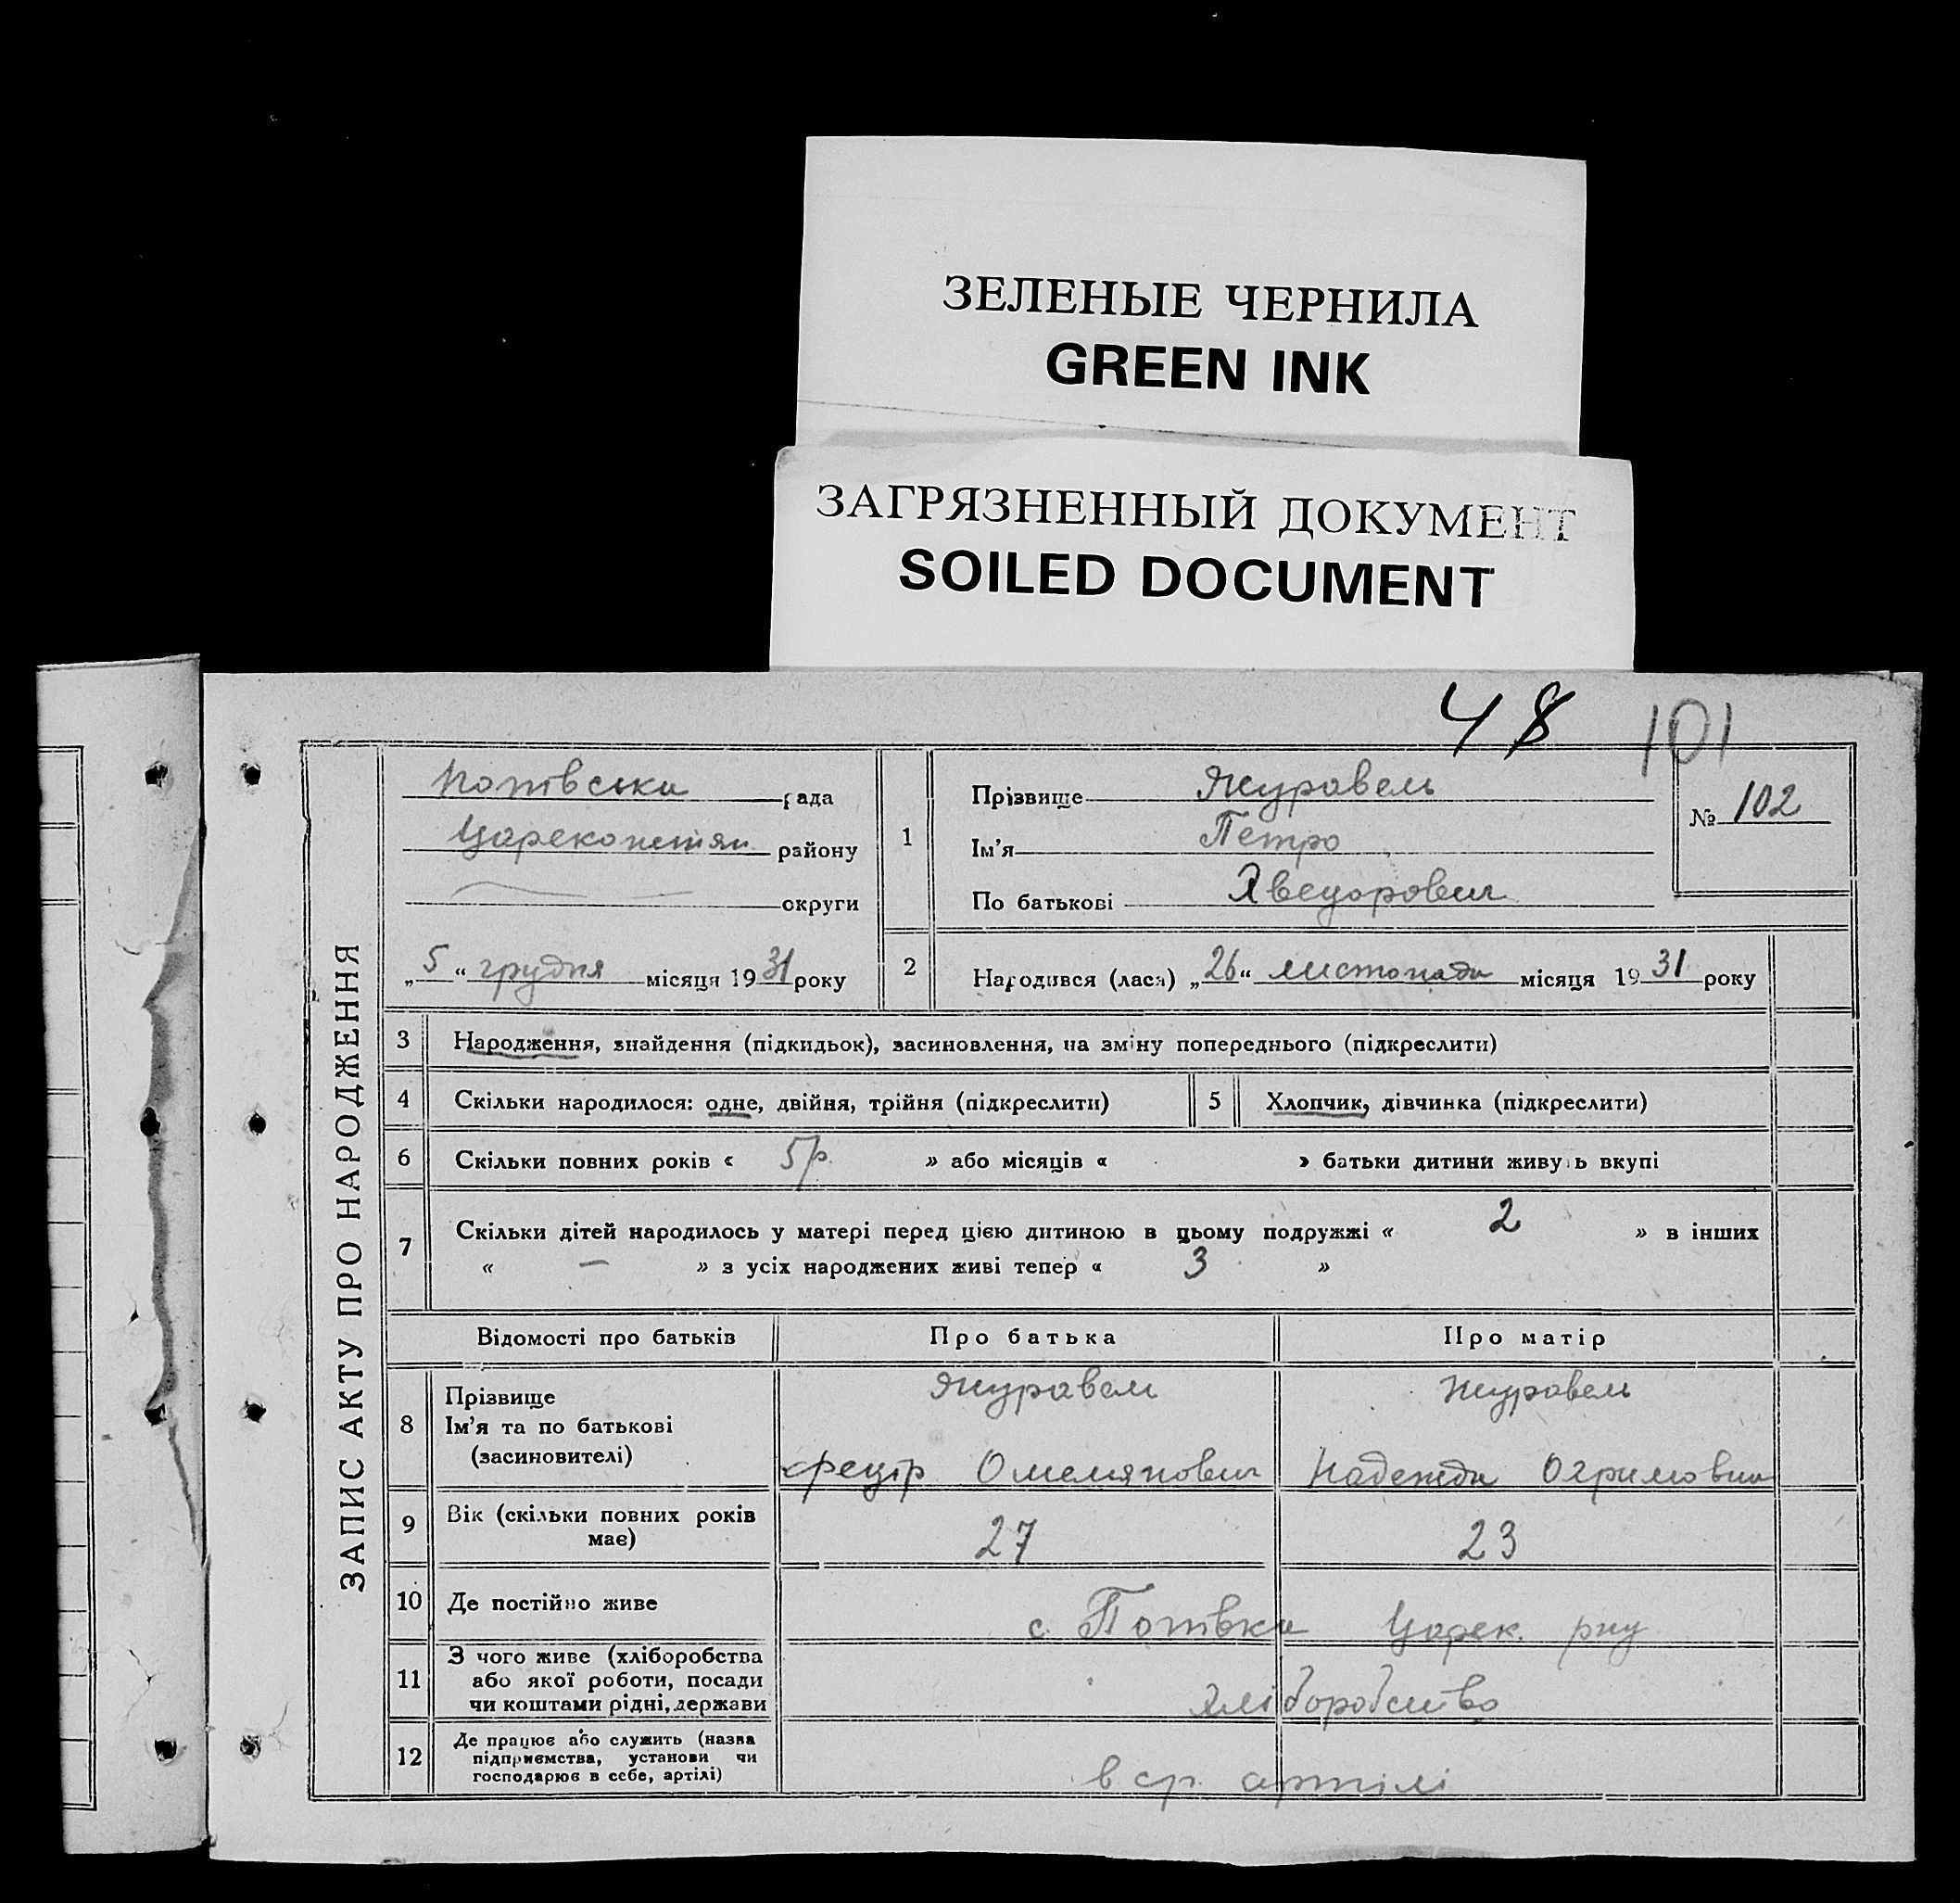 ЗЕЛЕНЫЕ ЧЕРНИЛА
GREEN INK
ЗАГРЯЗНЕННЫЙ ДОКУМЕНТ
SOILED DOCUMENT
48 101
ЗАПИС АКТУ ПРО НАРОДЖЕННЯ
рада
району
округи
„5“ грудня місяця 1931 року
1
Прізвище Журавель
Ім'я Петро
По батькові
№ 102
2 Народився (лася) „26“ листопада місяця 1931 року
3 Народження, знайдення (підкидьок), засиновлення, на зміну попереднього (підкреслити)
4 Скільки народилося: одне, двійня, трійня (підкреслити) 5 Хлопчик, дівчинка (підкреслити)
6 Скільки повних років « 5р. » або місяців « » батьки дитини живуть вкупі
7 Скільки дітей народилось у матері перед цією дитиною в цьому подружжі « 2 » в інших
« — » з усіх народжених живі тепер « 3 »
Відомості про батьків Про батька Про матір
8 Прізвище
Ім'я та по батькові
(засиновителі)
Журавель Журавель
Омелянович Надежда Охримовна
9 Вік (скільки повних років
має)
27 23
10 Де постійно живе с. Царек. р-ну
11 З чого живе (хліборобства
або якої роботи, посади
чи коштами рідні, держави
хліборобство
12 Де працює або служить (назва
підприємства, установи чи
господарює в себе, артілі)
в ср. артілі